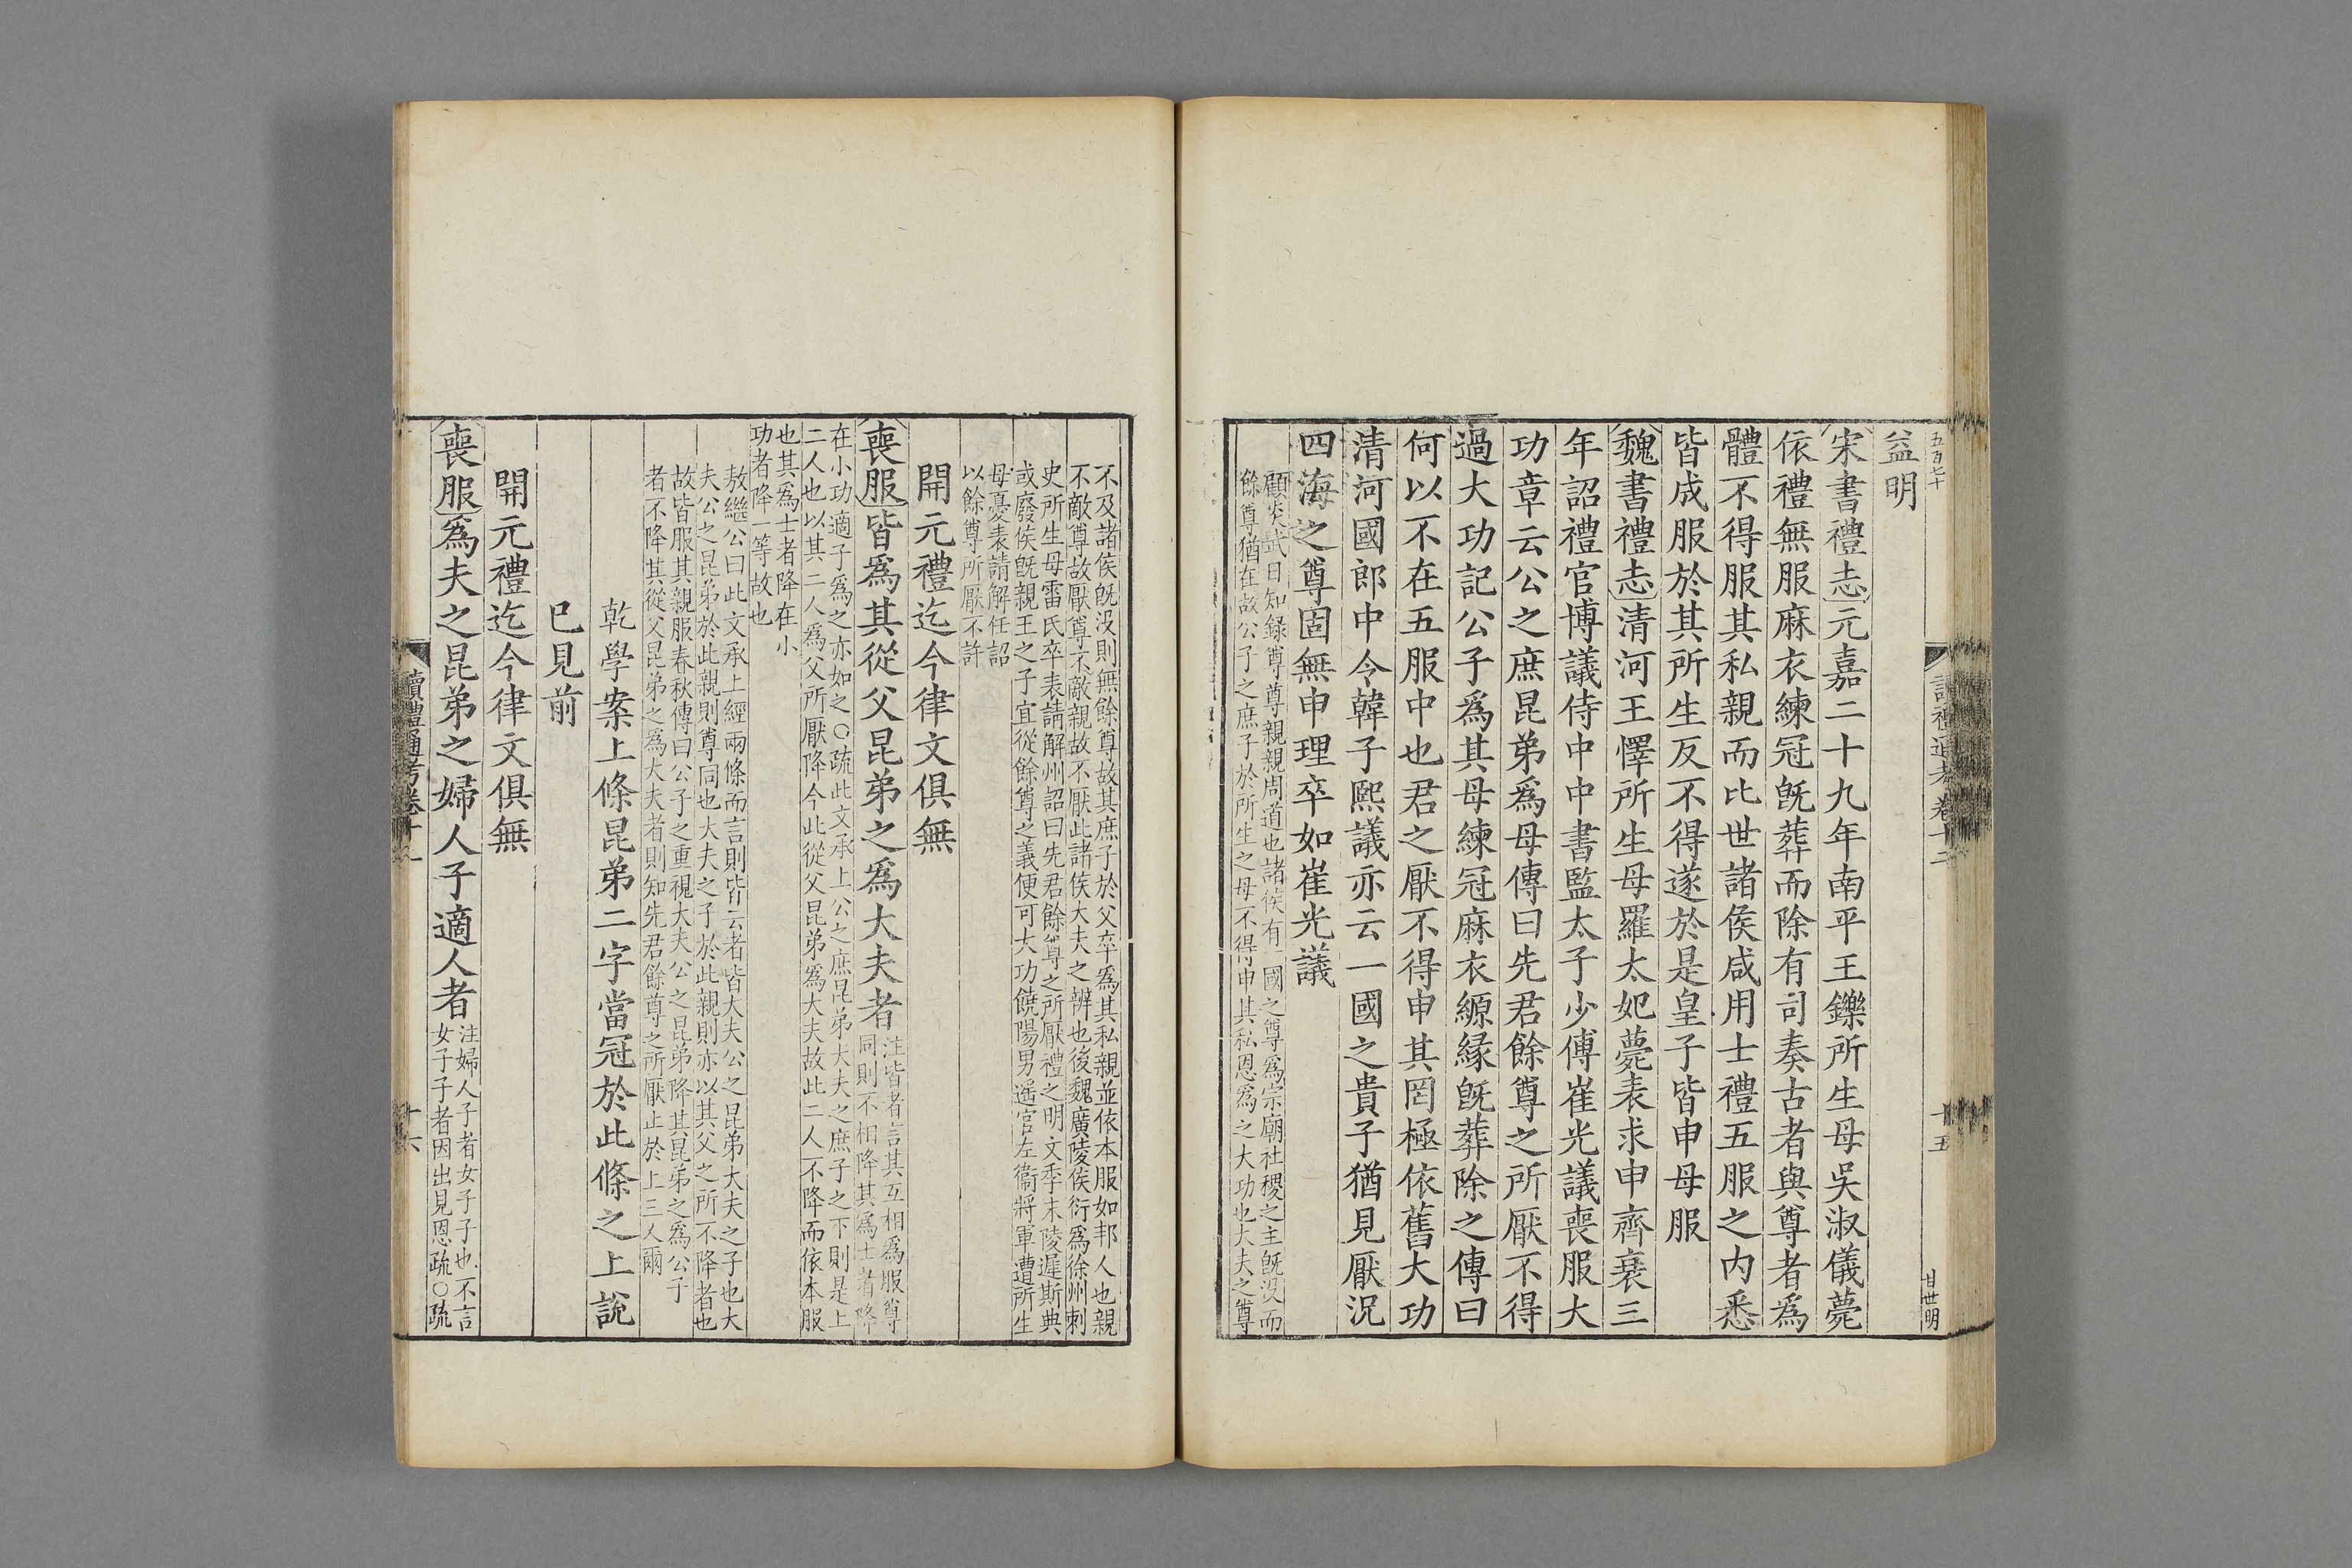 五百七十
讀禮通考卷十二
十五
甘世明
益明
宋書禮志元嘉二十九年南平王鑠所生母吳淑儀薨
依禮無服麻衣練冠旣葬而除有司奏古者與尊者爲
體不得服其私親而比世諸侯咸用士禮五服之內悉
皆成服於其所生反不得遂於是皇子皆申母服
魏書禮志清河王懌所生母羅太妃薨表求申齊衰三
年詔禮官博議侍中中書監太子少傅崔光議喪服大
功章云公之庶昆弟爲母傳曰先君餘尊之所厭不得
過大功記公子爲其母練冠麻衣縓緣旣葬除之傳曰
何以不在五服中也君之厭不得申其罔極依舊大功
清河國郎中令韓子熙議亦云一國之貴子猶見厭況
四海之尊固無申理卒如崔光議
顧炎武日知錄尊尊親親周道也諸侯有一國之尊爲宗廟社稷之主旣沒而
餘尊猶在故公子之庶子於所生之母不得申其私恩爲之大功也大夫之尊
不及諸侯旣沒則無餘尊故其庶子於父卒爲其私親並依本服如邦人也親
不敵尊故厭尊不敵親故不厭此諸侯大夫之辨也後魏廣陵侯衍爲徐州刺
史所生母雷氏卒表請解州詔曰先君餘尊之所厭禮之明文季末陵遲斯典
或廢侯旣親王之子宜從餘尊之義便可大功饒陽男遥官左衞將軍遭所生
母憂表請解任詔
以餘尊所厭不許
開元禮迄今律文俱無
喪服皆爲其從父昆弟之爲大夫者
注皆者言其互相爲服尊
同則不相降其爲士者降
在小功適子爲之亦如之〇疏此文承上公之庶昆弟大夫之庶子之下則是上
二人也以其二人爲父所厭降今此從父昆弟爲大夫故此二人不降而依本服
也其爲士者降在小
功者降一等故也
敖繼公曰此文承上經兩條而言則皆云者皆大夫公之昆弟大夫之子也大
夫公之昆弟於此親則尊同也大夫之子於此親則亦以其父之所不降者也
故皆服其親服春秋傳曰公子之重視大夫公之昆弟降其昆弟之爲公子
者不降其從父昆弟之爲大夫者則知先君餘尊之所厭止於上三人爾
乾學案上條昆弟二字當冠於此條之上說
巳見前
開元禮迄今律文俱無
喪服爲夫之昆弟之婦人子適人者
注婦人子者女子子也不言
女子子者因出見恩疏〇疏
讀禮通考卷十二
十六